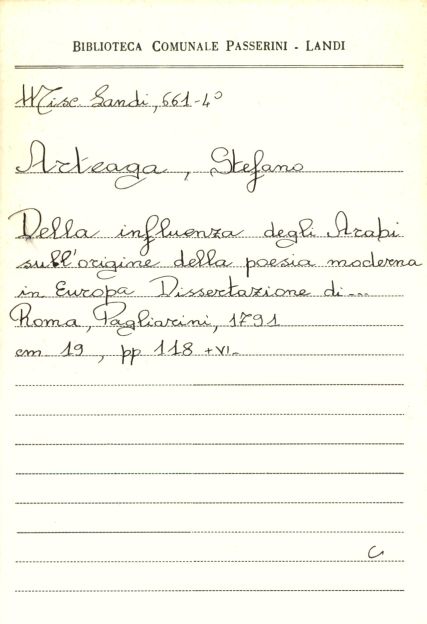 BIBLIOTECA COMUNALE PASSERINI - LANDI
Misc. Landi, 661-4°
Arteaga, Stefano
Della influenza degli Arabi
sull'origine della poesia moderna
in Europa Dissertazione di...
Roma, Pagliarini, 1791
cm 19, pp 118 + VI.